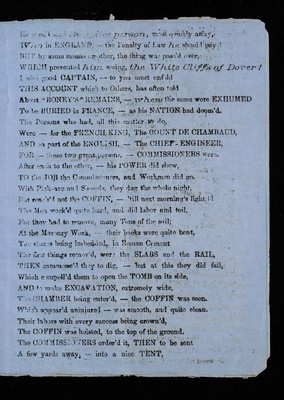 person, must quickly away,
IF in ENGLAND, — the Penalty of Law he should pay!
BUT by some means or other, the thing was pass'd over,
WHICH prevented him seeing, the White Cliffs of Dover!
I also good CAPTAIN, — to you must unfold
THIS ACCOUNT which to Others, has often told
About "BONEY'S" REMAINS, — when the same were EXHUMED
To be BURIED in FRANCE, — as his NATION had doom'd.
The Persons who had, all this matter to do,
Were — for the FRENCH KING, The COUNT DE CHAMBAUD,
AND on part of the ENGLISH, — The CHIEF-ENGINEER,
FOR — these two great persons, — COMMISSIONERS were.
After each to the other, — his POWER did show,
TO the JOB the Commissioners, and Workmen did go.
With Pick-axe and Shovels, they dug the whole night,
But reach'd not the COFFIN, — 'till next morning's light!
The Men work'd quite hard, and did labor and toil,
For they had to remove, many Tons of the soil;
At the Masonry Work, — their backs were quite bent,
The stones being imbedded, in Roman Cement
The first things remov'd, were the SLABS and the RAIL,
THEN commenc'd they to dig, — but at this they did fail,
Which compell'd them to open the TOMB on its side,
AND to make EXCAVATION, extremely wide,
The CHAMBER being enter'd, — the COFFIN was seen.
Which appear'd uninjured — was smooth, and quite clean.
Their labors with every success being crown'd,
The COFFIN was hoisted, to the top of the ground.
The COMMISSIONERS order'd it, THEN to be sent
A few yards away, — into a nice TENT,